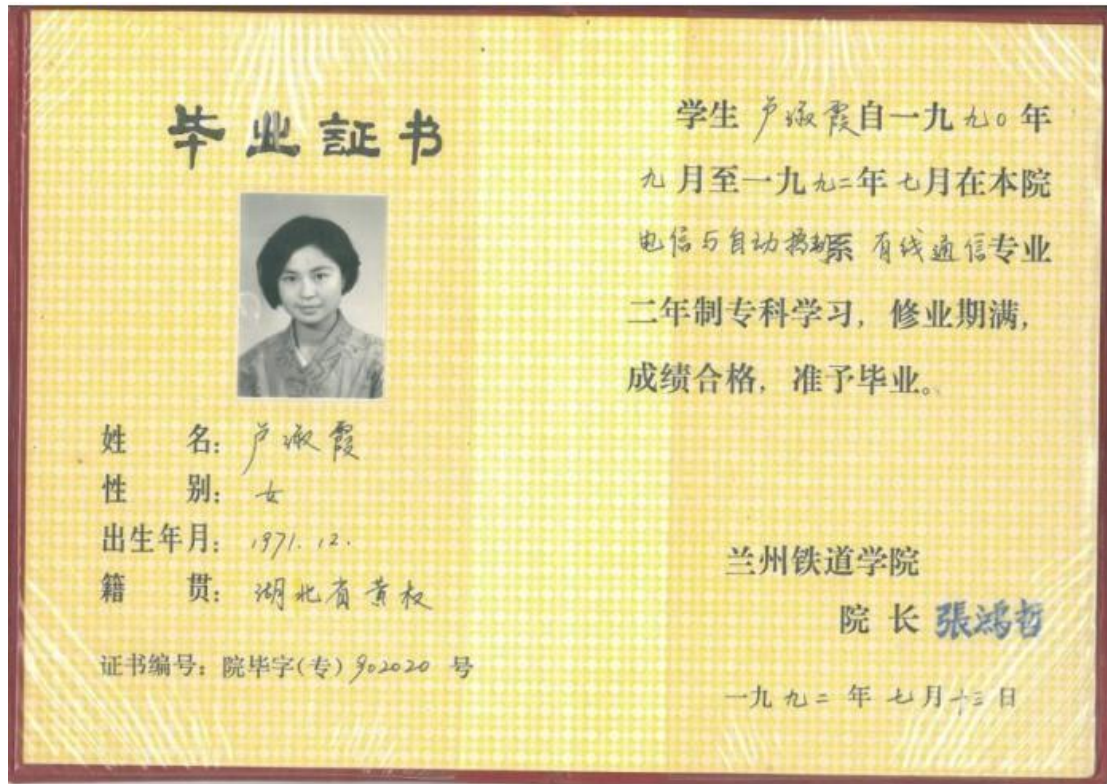 毕业証书
姓 名：卢淑霞
性 别：女
出生年月：1971.12.
籍 贯：湖北省黄
证书编号：院毕字(专)902020 号
学生 卢淑霞自一九九〇年
九月至一九九二年七月在本院
电信与自动控制系 有线通信专业
二年制专科学习，修业期满，
成绩合格，准予毕业。
兰州铁道学院
院 长 張鴻哲
一九九二年七月十三日